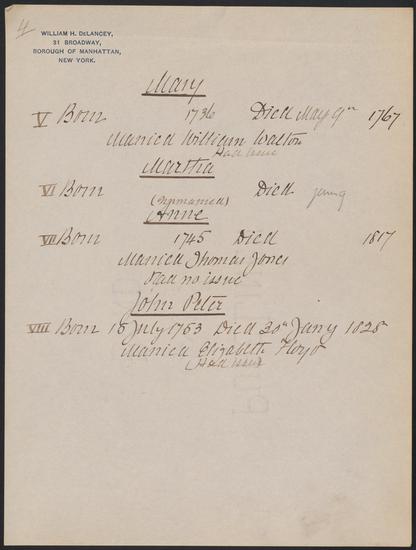 4
WILLIAM H. DELANCEY,
31 BROADWAY,
BOROUGH OF MANHATTAN,
NEW YORK.
Mary
V Born 1736 Died May 9th 1767
Married William Walton
Had issue
Martha
VI Born Died young
(Unmarried)
Anne
VII Born 1745 Died 1817
Married Thomas Jones
Had no issue
John Peter
VIII Born 15 July 1753 Died 30th Jany 1828
Married Elizabeth Floyd
(Had issue)